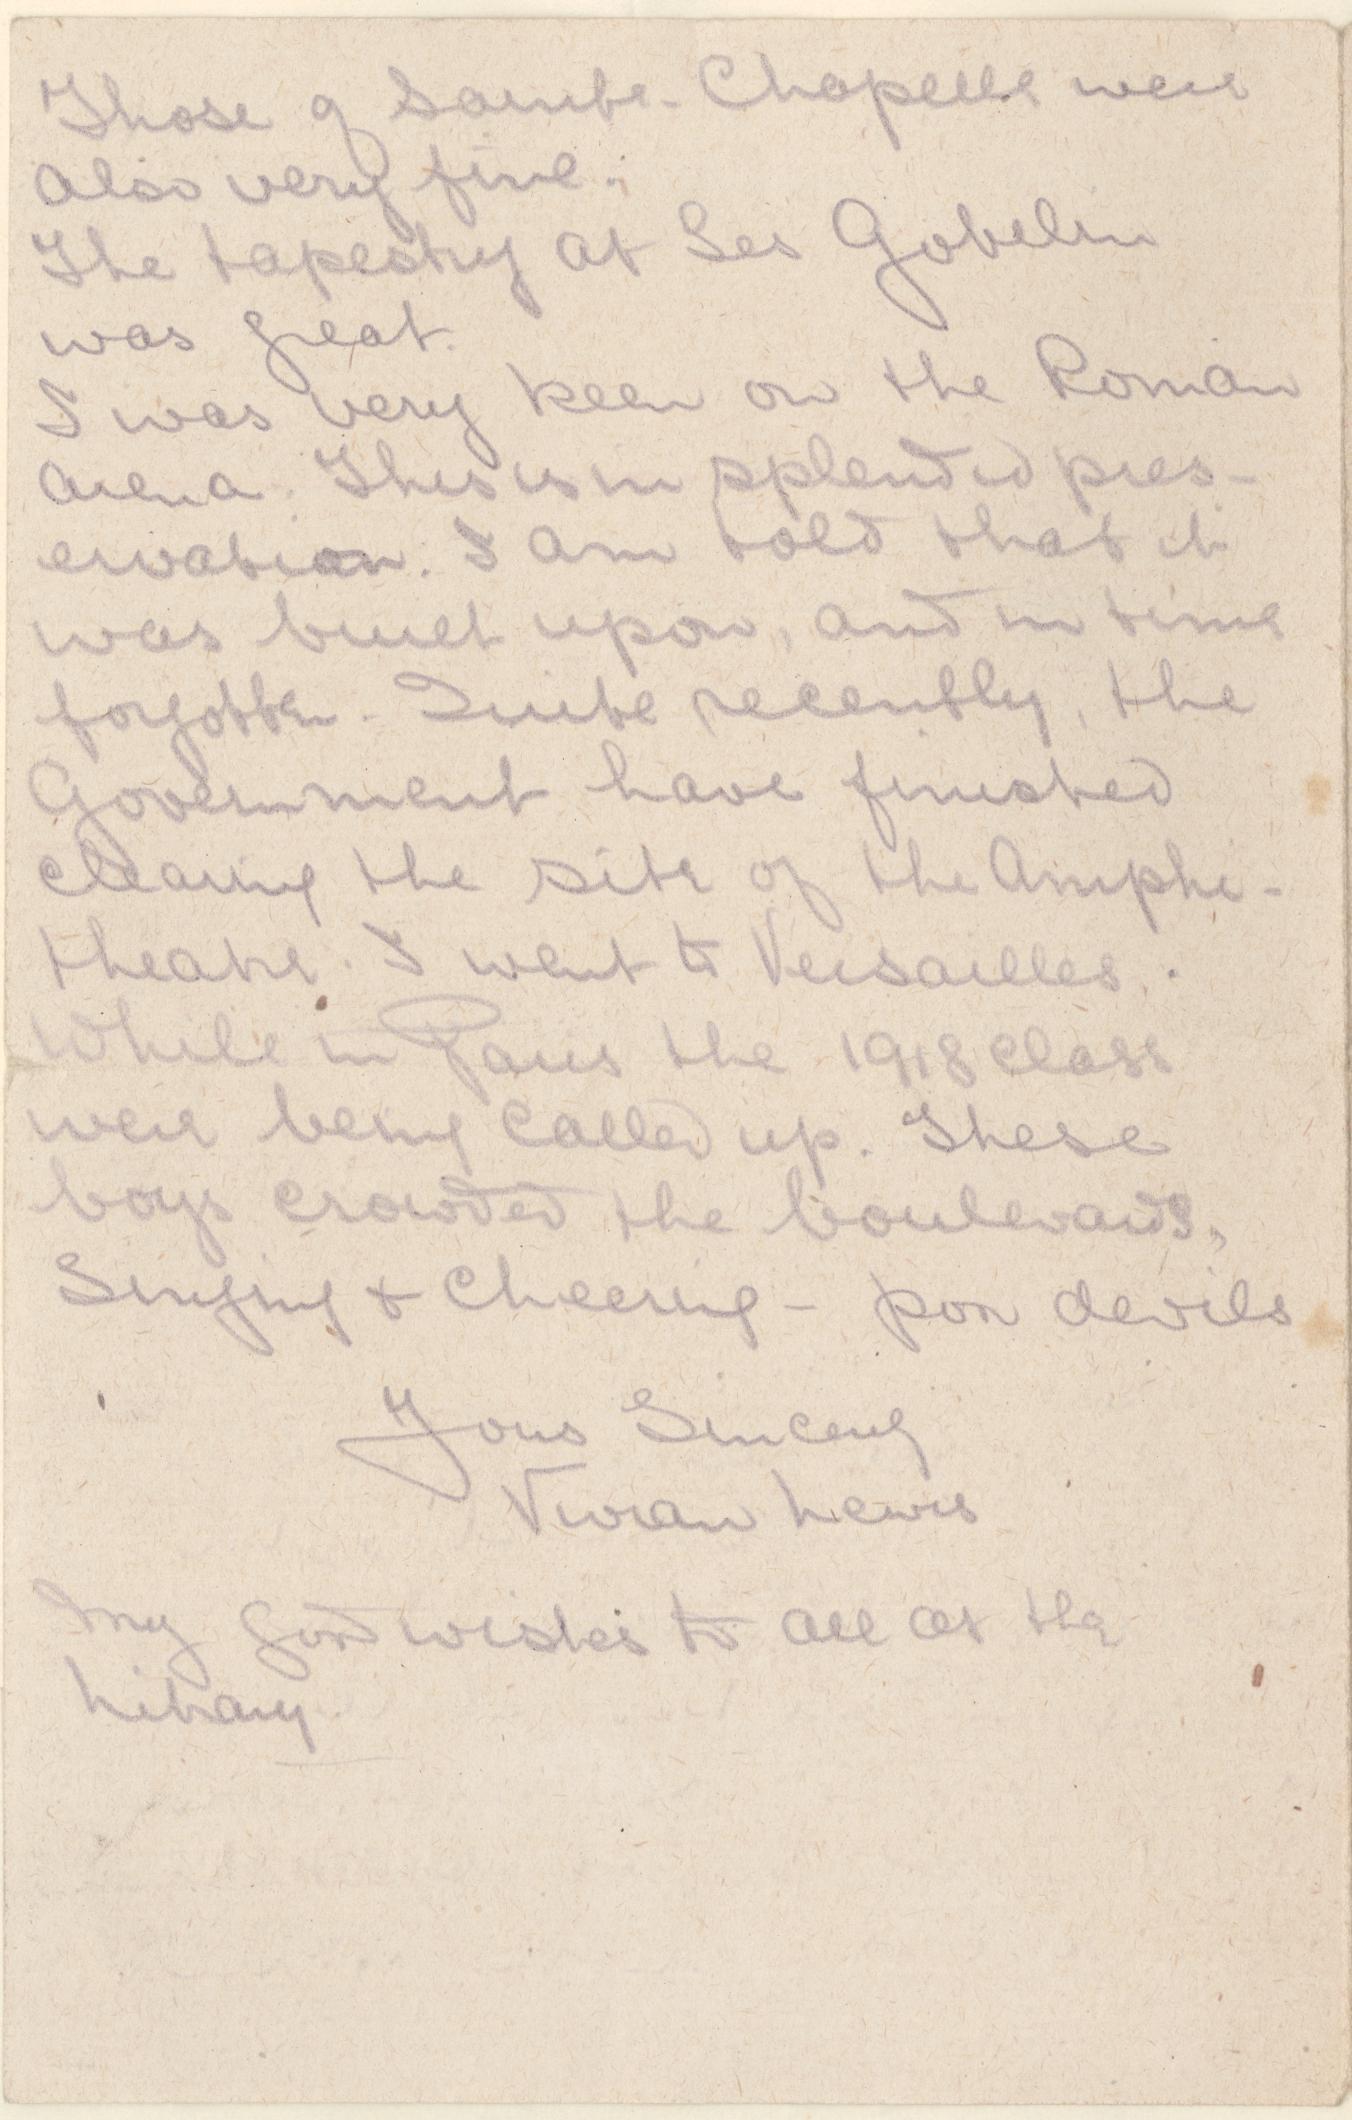 Those of Sainte-Chapelle were
also very fine.
The tapestry at Les Gobelin
was great.
I was very keen on the Roman
Arena. This is in splendid pres-
ervation. I am told that it
was built upon, and in time
forgotten. Quite recently, the
Government have finished
clearing the site of the Amphi-
theatre. I went to Versailles.
While in Paris the 1918 class
were being called up. These
boys crowded the boulevards,
Singing & Cheering - poor devils
Yours Sincerely
Vivian Lewis
My good wishes to all at the
Library